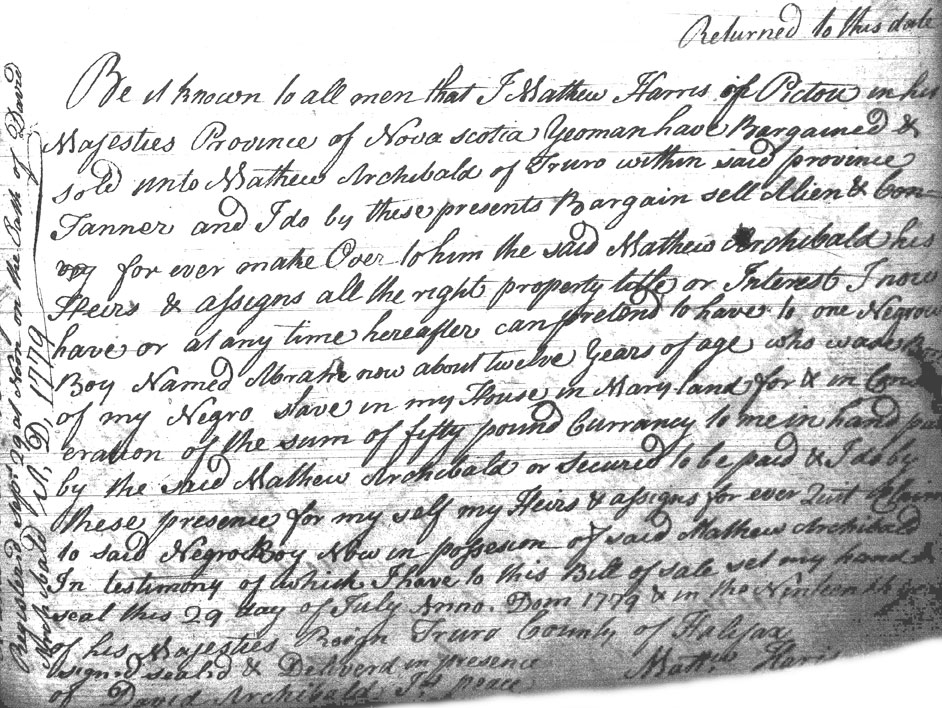 Returned to this date
Be it known to all men that I Mathew Harris of Pictou in his
Majesties Province of Nova scotia Yeoman have Bargained &
sold unto Mathew Archibald of Truro within said province
Tanner and I do by these presents Bargain sell Alien & Con-
vey for ever make Over to him the said Mathew Archibald his
Heirs & assigns all the right property title or Interest I now
have or at any time hereafter can pretend to have to one Negrow
Boy Named Abram now about twelve Years of age who was Born
of my Negro slave in my House in Mary land for & in Cons
eration of the sum of fifty pound Currancy to me in hand paid
by the said Mathew Archibald or secured to be paid & I do by
these presence for my self my Heirs & assigns for ever Quit Claim
to said Negro Boy Now in possesion of said Mathew Archibald
In testimony of which I have to this Bill of sale set my hand &
seal this 29 day of July Anno. Dom 1779 & in the Ninteenth year
of his Majesties Reign Truro County of Halifax
signd sealed & Deliverd in presence
of David Archibald Jus peace
Matt.w Haris
Registerd Sepr 29 at Noon on the Oath of David
Archibald A, D, 1779